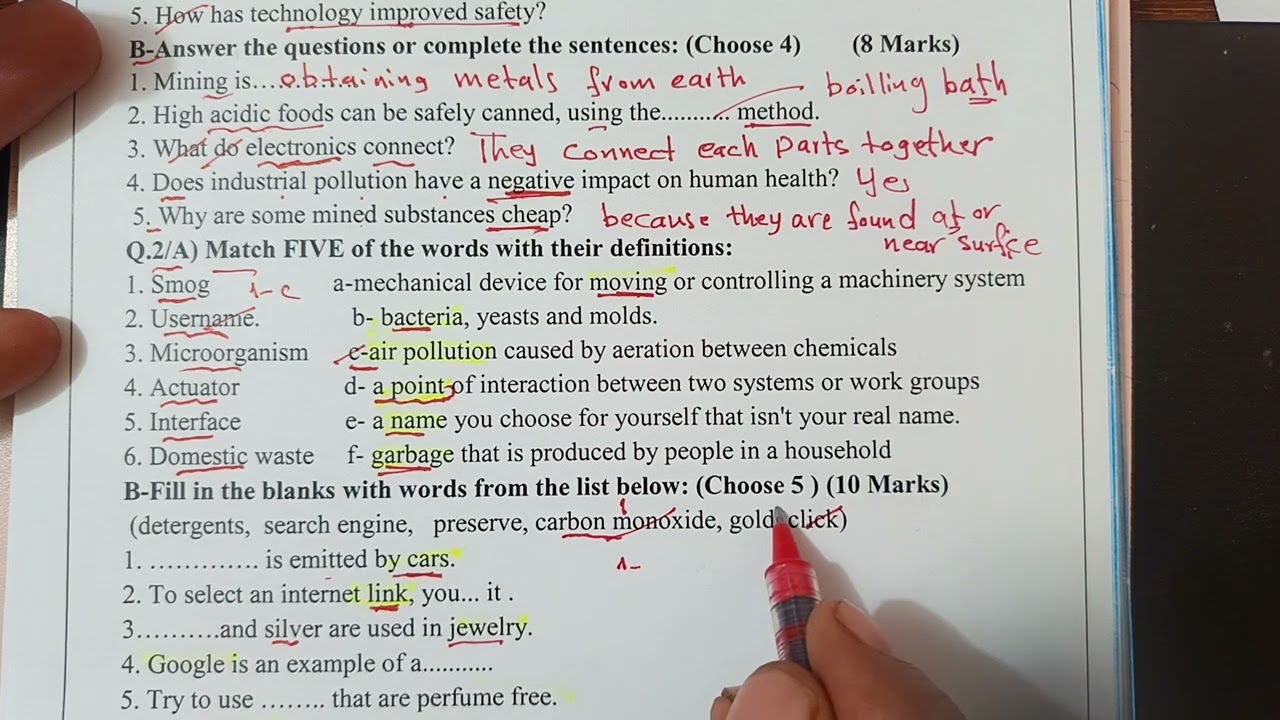 5. How has technology improved safety?
B-Answer the questions or complete the sentences: (Choose 4) (8 Marks)
1. Mining is....obtaining metals from earth
boilling bath
2. High acidic foods can be safely canned, using the........... method.
3. What do electronics connect? They connect each parts together
4. Does industrial pollution have a negative impact on human health? Yes
5. Why are some mined substances cheap? because they are found at or
near surfce
Q.2/A) Match FIVE of the words with their definitions:
1. Smog 1-c a-mechanical device for moving or controlling a machinery system
2. Username. b- bacteria, yeasts and molds.
3. Microorganism c-air pollution caused by aeration between chemicals
4. Actuator d- a point of interaction between two systems or work groups
5. Interface e- a name you choose for yourself that isn't your real name.
6. Domestic waste f- garbage that is produced by people in a household
B-Fill in the blanks with words from the list below: (Choose 5 ) (10 Marks)
1
(detergents, search engine, preserve, carbon monoxide, gold, click)
1. ............. is emitted by cars. 1-
2. To select an internet link, you... it .
3..........and silver are used in jewelry.
4. Google is an example of a...........
5. Try to use ........ that are perfume free.